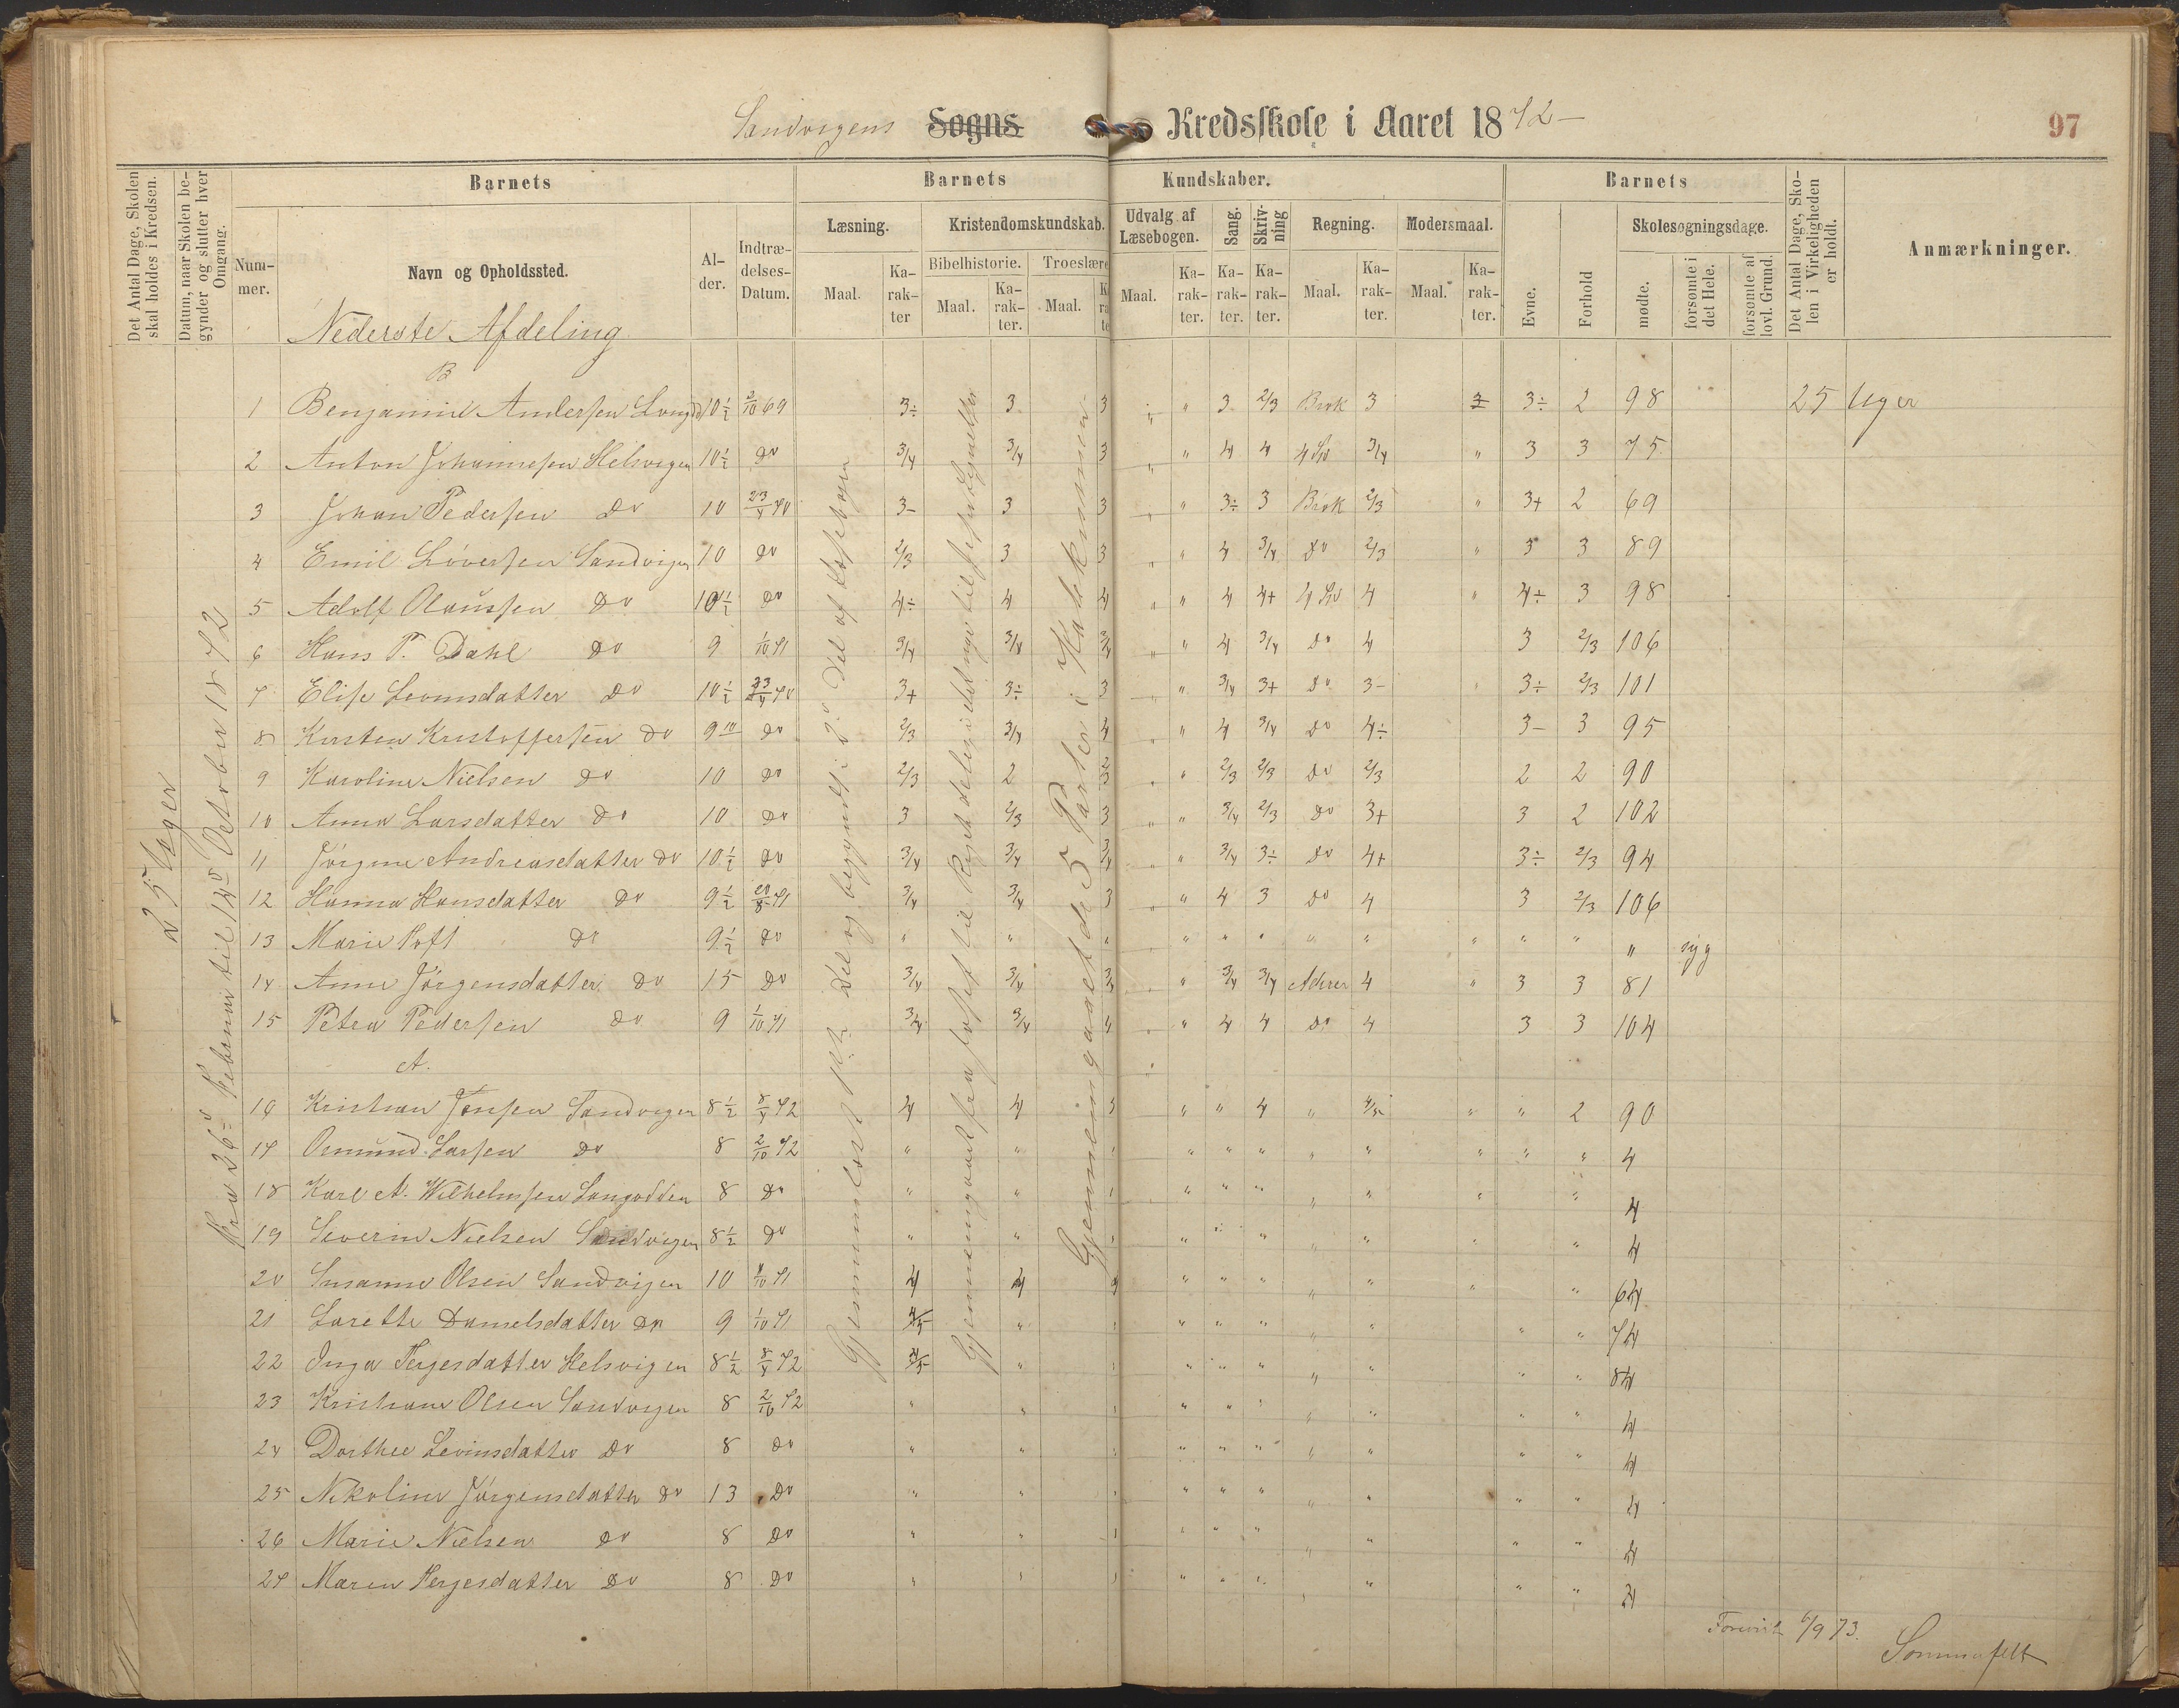 Sandvigens Sogns Kredsskole i Aaret 1872 97
Det Antal Dage, Skolen skal holdes i Kredsen.
Datum, naar Skolen begynder og slutter hver Omgang.
Barnets
Nummer.
Navn og Opholdssted.
Alder.
Indtrædelses-Datum.
Barnets Kundskaber.
Læsning.
Maal. Karakter
Kristendomskundskab.
Bibelhistorie. Troeslære
Maal. Karakter. Maal.
Udvalg af Læsebogen.
Maal. Karakter.
Sang. Karakter.
Skrivning Karakter.
Regning.
Maal. Karakter.
Modersmaal.
Maal. Karakter.
Barnets
Evne. Forhold
Skolesøgningsdage.
mødte. forsømte i det Hele. forsømte af lovl. Grund.
Det Antal Dage, Skolen i Virkeligheden er holdt.
Anmærkninger.
25 Uger
Fra 26de Februar til 12te October 1872
Gjennemlæst 1ste Del og begyndt i 2den Del af Læsebogen
Gjennemgaaet de 5 Parter i Katekismen
Nederste Afdeling
B
1 Benjamin Andersen 10½ 2/10 69 3÷ 3 3 " 3 2/3 Brøk 3 3 3÷ 2 98 25 Uger
2 Anton Johannesen Helsvigen 10½ do 3/4 3/4 3 " 4 4 3/4 " 3 3 75
3 Johan Pedersen do 10 23/4 70 3- 3 3 " 3÷ 3 Brøk 2/3 " 3+ 2 69
4 Emil Siversen Sandvigen 10 do 2/3 3 3 " 4 3/4 do 2/3 " 3 3 89
5 Adolf Olaussen do 10½ do 4÷ 4 4 " 4 4+ 4 " 4÷ 3 98
6 Hans P. Dahl do 9 1/10 71 3/4 3/4 3/4 " 4 3/4 do 4 3 2/3 106
7 Elise Levinsdatter do 10½ 23/4 70 3+ 3÷ 3 " 3/4 3+ do 3- 3÷ 2/3 101
8 Kirsten Kristoffersen do 9 do 2/3 3/4 4 " 4 3/4 do 4÷ 3- 3 95
9 Karoline Nielsen do 10 do 2/3 2 2/3 " 2/3 2/3 do 2/3 2 2 90
10 Anna Larsdatter do 10 do 3 2/3 3 " 3/4 2/3 do 3+ 3 2 102
11 Jörgine Andreasdatter do 10½ do 3/4 3/4 3/4 " 3/4 3÷ do 4+ 3÷ 2/3 94
12 Hanna Hansdatter do 9½ 71 3/4 3/4 3 " 4 3 do 4 3 2/3 106
13 Marie do 9½ do " " " " " " " " " " " " syg
14 Anne Jörgensdatter do 15 do 3/4 3/4 3/4 " 3/4 3/4 4 " 3 3 81
15 Petra Pedersen do 9 1/10 71 3/4 3/4 4 " 4 4 do 4 3 3 104
A.
16 Kristian Jensen Sandvigen 8½ 8/4 72 4 4 3 " " 4 " 4/5 " " 2 90
17 Osmund Larsen do 8 2/10 72 " " " " " " " " " " 4
18 Karl A. Wilhelmsen Langodden 8 do " " " " " " " " " 4
19 Severin Nielsen Sandvigen 8½ do " " " " " " " " " 4
20 Susanne Olsen Sandvigen 10 1/10 71 4 4 4 " " " " " " " 64
21 Lorette Danielsdatter do 9 1/10 71 4/5 " " " " " " " " " 74
22 Inga Tergesdatter Helsvigen 8½ 8/4 72 4/5 " " " " " " " " " 84
23 Kristiane Olsen Sandvigen 8 2/10 72 " " " " " " " " " 4
24 Dorthee Levinsdatter do 8 do " " " " " " " " " 4
25 Nikoline Jörgensdatter do 13 do " " " " " " " " " 4
26 Marie Nielsen do 8 do " " " " " " " " " 4
27 Maren Tergesdatter do 8 do " " " " " " " " " 4
Forevist 6/9 73.
Sommerfelt